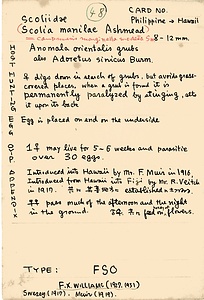 Scoliidae
48
CARD NO.
(Scolia manilae Ashmead)
Philippine → Hawaii
= Campsomeris marginella modesta Sm 8-12 mm.
HOST HUNTING EGG OVIP. APPENDIX
Anomala orientalis grubs
also Adoretus sinicus Burm.
♀ digs down in search of grubs, but avoids grass-
covered places, when a grub is found it is
permanently paralyzed by stinging, all
it upon its back
Egg is placed on and on the underside
1♀ may live for 5-6 weeks and parasitize
over 30 eggs.
Introduced into Hawaii by Mr. F. Muir in 1916.
Introduced from Hawaii into Fiji by Mr. R. Veitch
in established
♀♀ pass much of the afternoon and the night
in the ground. feed on flowers.
TYPE: FSO
F.X. WILLIAMS (1919, 1931)
Swezey (1917). Muir (1919).